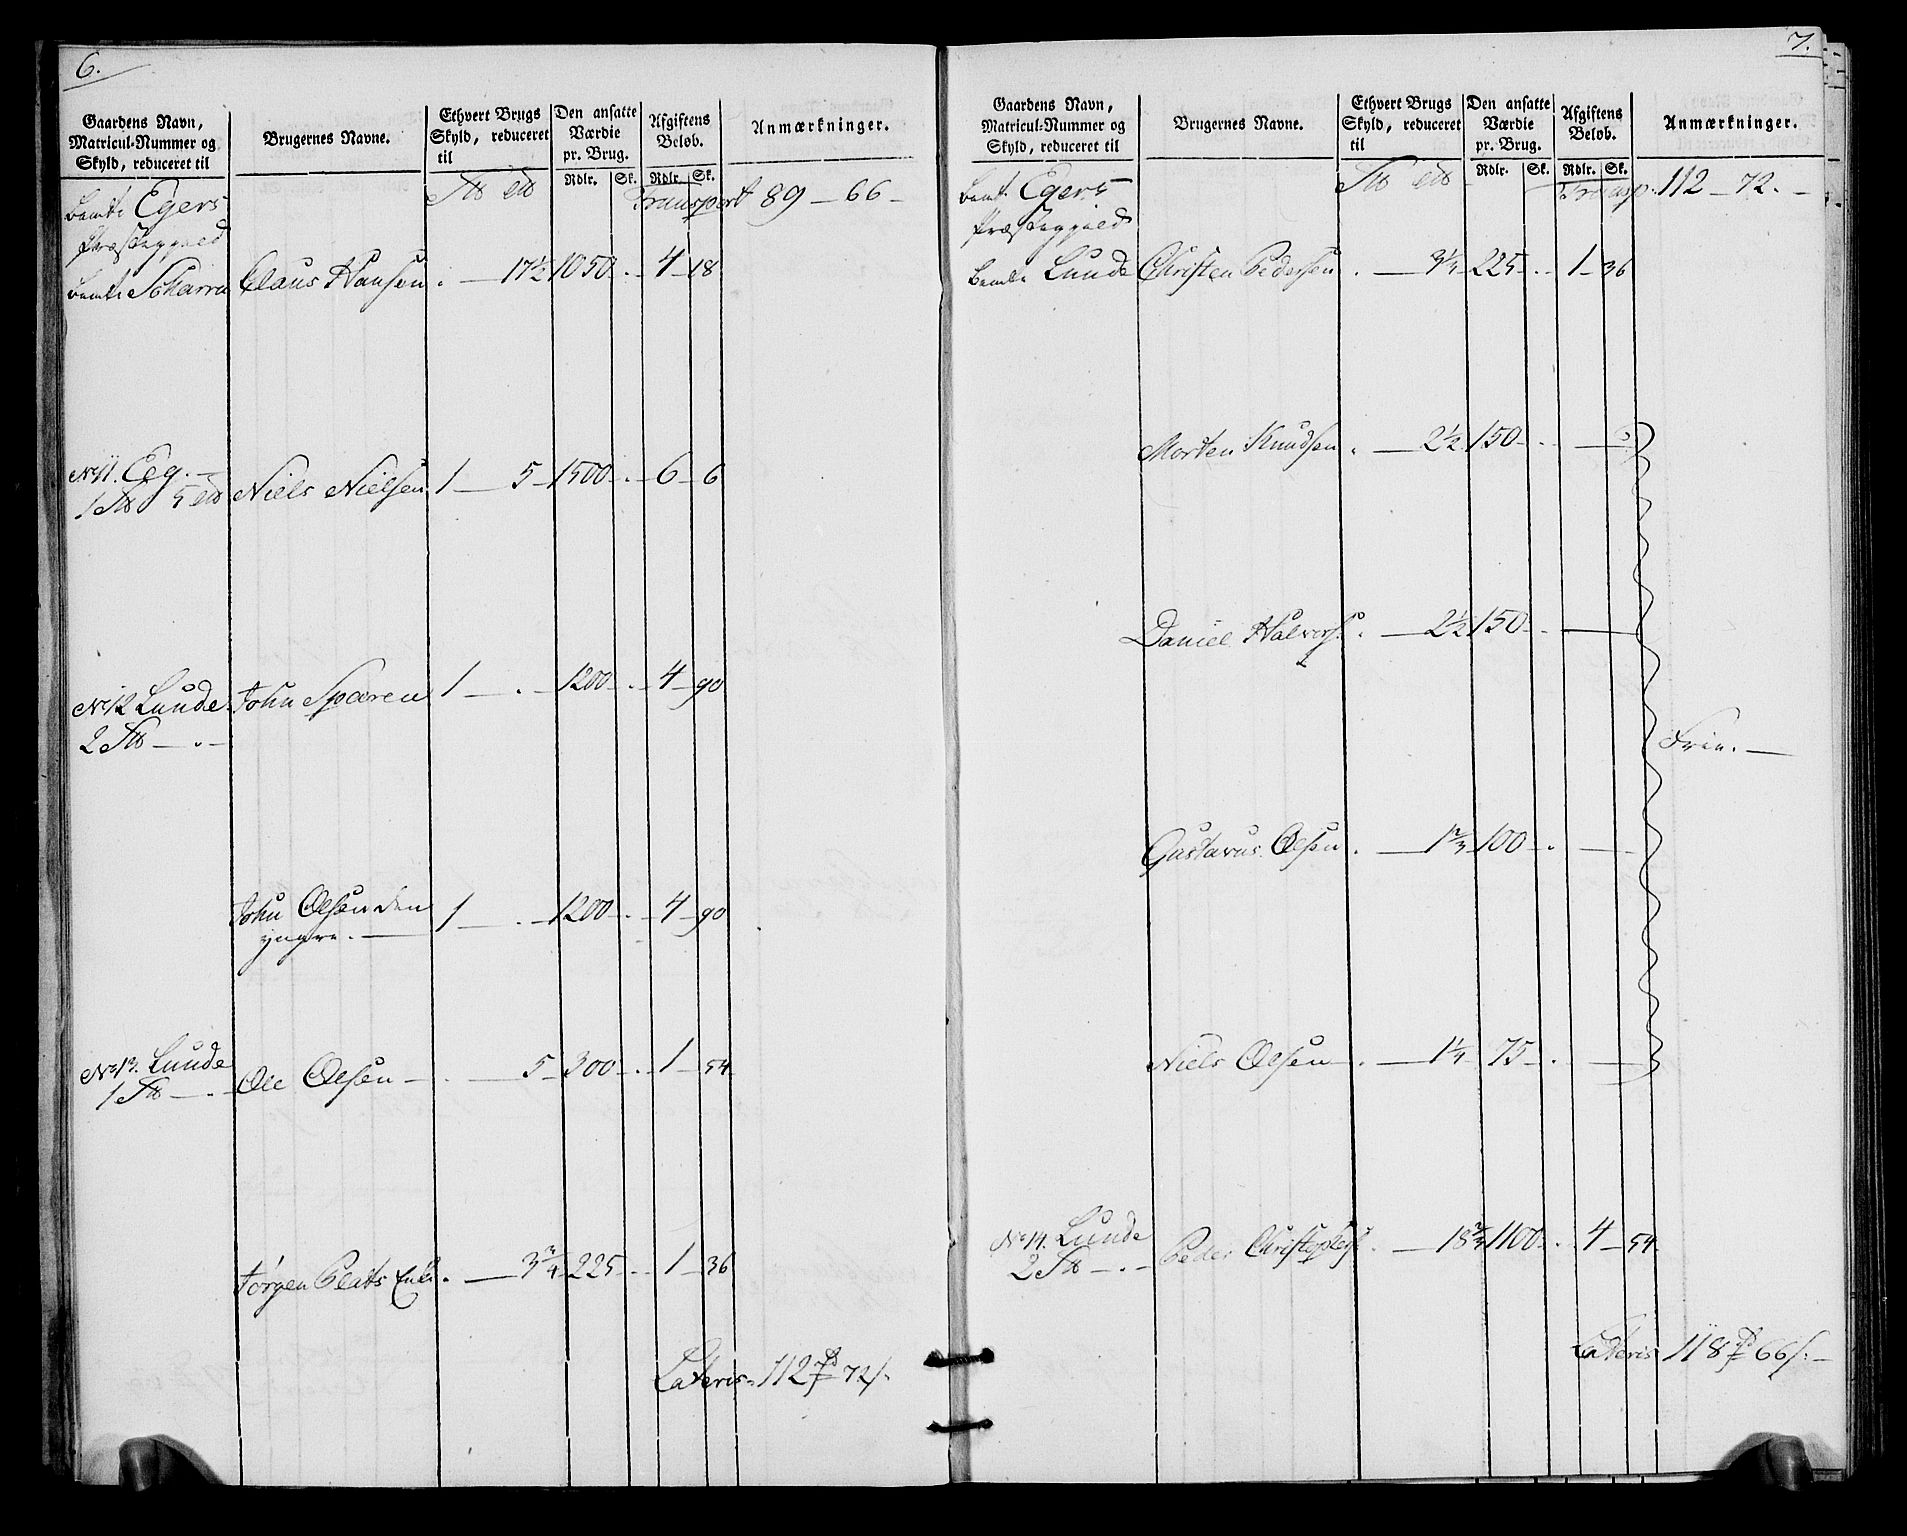 6.
Gaardens Navn, Matricul-Nummer og Skyld, reduceret til
Brugernes Navne.
Ethvert Brugs Skyld, reduceret til
Den ansatte Værdie pr. Brug.
Afgiftens Beløb.
Anmærkninger.
Rdlr. Sk. Rdlr. Sk.
Transport 89 — 66 —
bemte Egers
Præstegield
bemte Scharra Claus Hansen . — 17½ 1050 . 4 — 18
No 11. Eeg. —
Niels Nielsen 1 — 5 — 1500 . 6 — 6
No 12 Lunde John Sparen 1 — . — 1200 . 4 — 90
John Olsen den 1 — . — 1200 . 4 — 90
yngre. —
No 13. Lunde
Ole Olsen — . — 5 — 300 . 1 — 54
Jørgen Peats Enke . — 3¾ 225 . 1 — 36
Lateris 112 72
7.
Gaardens Navn, Matricul-Nummer og Skyld, reduceret til
Brugernes Navne.
Ethvert Brugs Skyld, reduceret til
Den ansatte Værdie pr. Brug.
Afgiftens Beløb.
Anmærkninger.
Rdlr. Sk. Rdlr. Sk.
Transp. 112 — 72. —
bemte Egers
Præstegield
bemte Lunde Christen Pedersen . — 225 . 1 — 36
Morten Knudsen . — 2½ 150 . —
Daniel Halvors. . — 2½ 150 . —
Frie. —
Gustavus Olsen . — 1⅔ 100 . —
Niels Olsen . — 1¼ 75 . —
No 14. Lunde Peder Christophers. . — 18 1100 . 4 — 54
Lateris 118 66